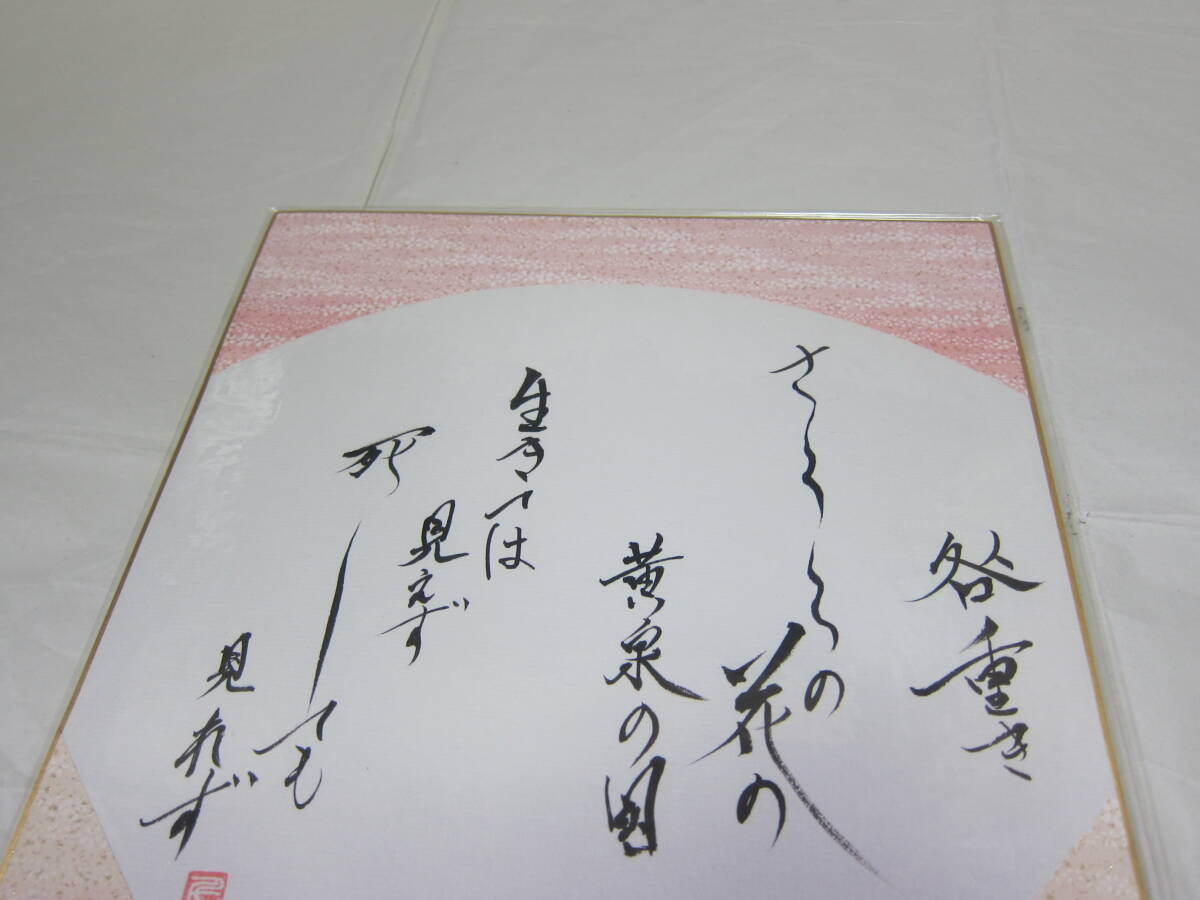 咎重き
さくらの
花の
黄泉の国
生きては
見えず
死しても
見れず